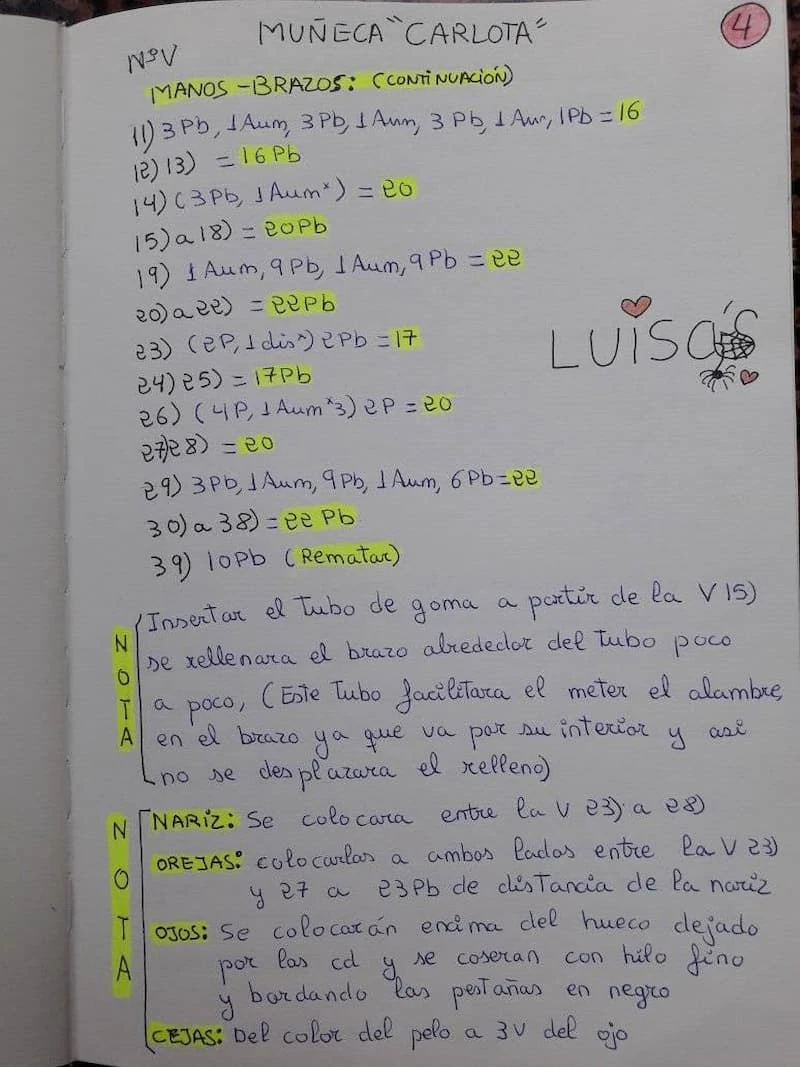 4
MUÑECA "CARLOTA"
NºV
MANOS-BRAZOS: (CONTINUACIÓN)
11) 3Pb, 1Aum, 3Pb, 1Aum, 3Pb, 1Aum, 1Pb = 16
12) 13) = 16Pb
14) (3Pb, 1Aum*) = 20
15) a 18) = 20Pb
19) 1Aum, 9Pb, 1Aum, 9Pb = 22
20) a 22) = 22Pb
23) (2P, 1dis*) 2Pb = 17
24) 25) = 17Pb
26) (4P, 1Aum*3) 2P = 20
27) 28) = 20
29) 3Pb, 1Aum, 9Pb, 1Aum, 6Pb = 22
30) a 38) = 22 Pb
39) 10Pb (Rematar)
LUISA'S
NOTA
Insertar el Tubo de goma a partir de la V 15)
se rellenara el brazo alrededor del Tubo poco
a poco, (Este Tubo facilitara el meter el alambre,
en el brazo ya que va por su interior y asi
no se desplazara el relleno)
NOTA
NARIZ: Se colocara entre la V 23) a 28)
OREJAS: colocarlas a ambos lados entre la V 23)
y 27 a 23Pb de distancia de la nariz
OJOS: Se colocarán encima del hueco dejado
por las cd y se coseran con hilo fino
y bordando las pestañas en negro
CEJAS: Del color del pelo a 3V del ojo